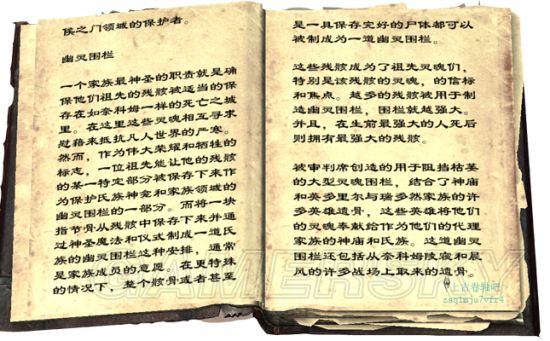 侯之门领域的保护者。
幽灵围栏
一个家族最神圣的职责就是确
保他们祖先的残骸被适当的保
存在如奈科姆一样的死亡之城
里。在这里这些灵魂相互寻求
慰藉来抵抗凡人世界的严寒。
然而，作为伟大荣耀和牺牲的
标志，一位祖先能让他的残骸
的某一特定部分被保存下来作
为保护氏族神龛和家族领域的
幽灵围栏的一部分。而将一块
指节骨从残骸中保存下来并通
过神圣魔法和仪式制成一道氏
族的幽灵围栏这种安排，通常
是家族成员的意愿。在更特殊
的情况下，整个骸骨或者甚至
是一具保存完好的尸体都可以
被制成为一道幽灵围栏。
这些残骸成为了祖先灵魂们，
特别是该残骸的灵魂，的信标
和焦点。越多的残骸被用于制
造幽灵围栏，围栏就越强大。
并且，在生前最强大的人死后
则拥有最强大的残骸。
被审判席创造的用于阻挡枯萎
的大型灵魂围栏，结合了神庙
和英多里尔与瑞多然家族的许
多英雄遗骨，这些英雄将他们
的灵魂奉献给作为他们的代理
家族的神庙和氏族。这道幽灵
围栏还包括从奈科姆陵寝和晨
风的许多战场上取来的遗骨。
GAMERSKY
@上古卷轴吧
zaq1mju7vfr4